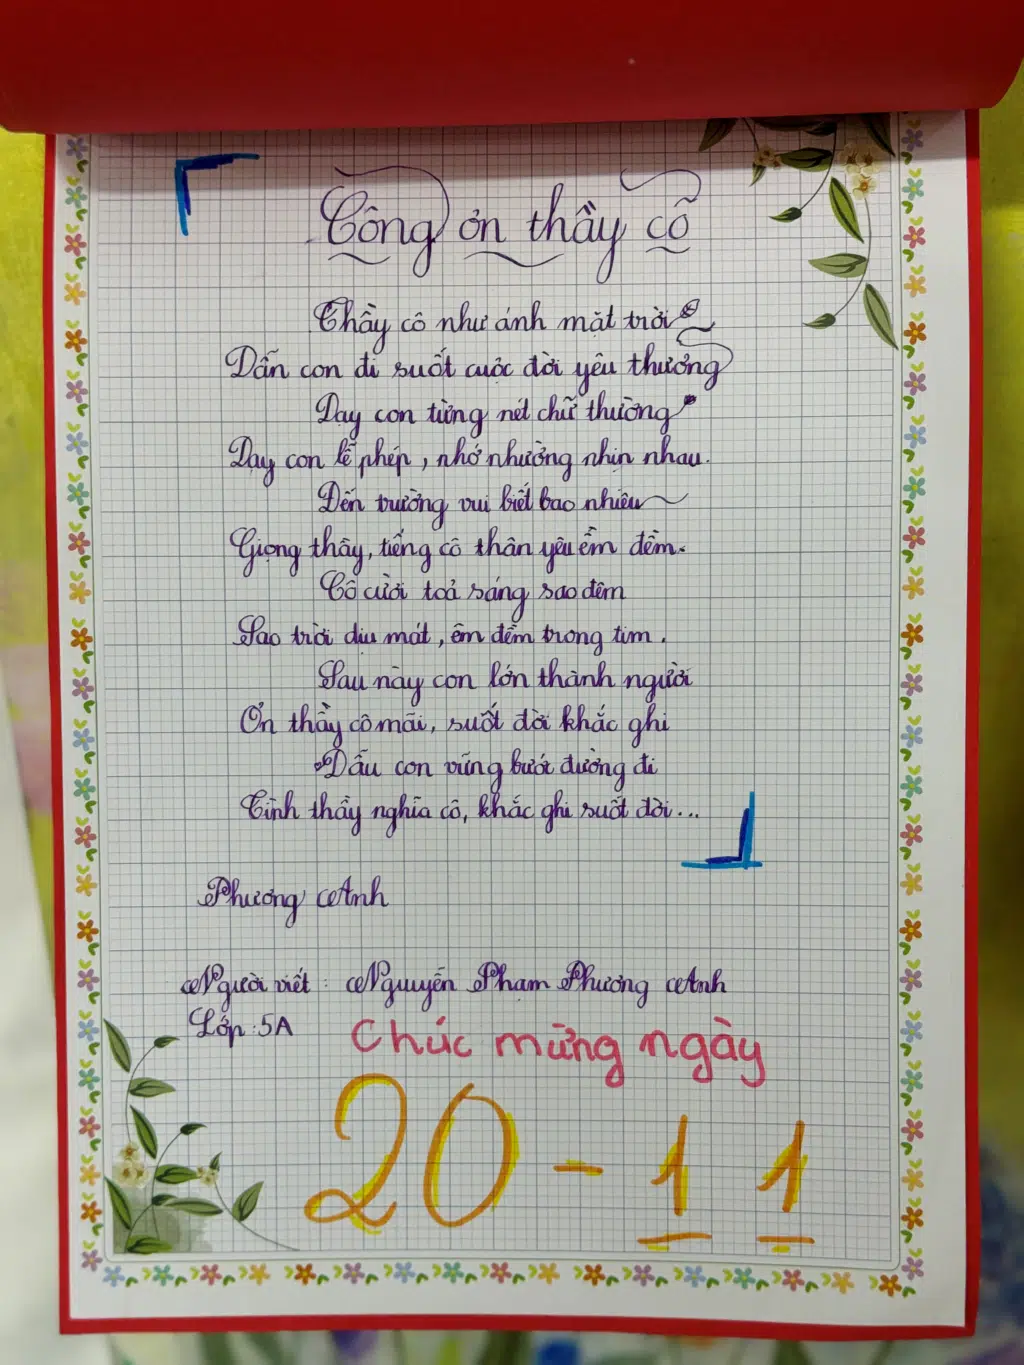 Công ơn thầy cô
Thầy cô như ánh mặt trời
Dẫn con đi suốt cuộc đời yêu thương
Dạy con từng nét chữ thường
Dạy con lễ phép, nhớ nhường nhịn nhau.
Đến trường vui biết bao nhiêu
Giọng thầy, tiếng cô thân yêu êm đềm.
Cô cười toả sáng sao đêm
Sao trời dịu mát, êm đềm trong tim.
Sau này con lớn thành người
Ơn thầy cô mãi, suốt đời khắc ghi
Dẫu con vững bước đường đi
Tình thầy nghĩa cô, khắc ghi suốt đời...
Phương Anh
Người viết: Nguyễn Phạm Phương Anh
Lớp: 5A
Chúc mừng ngày
20-11